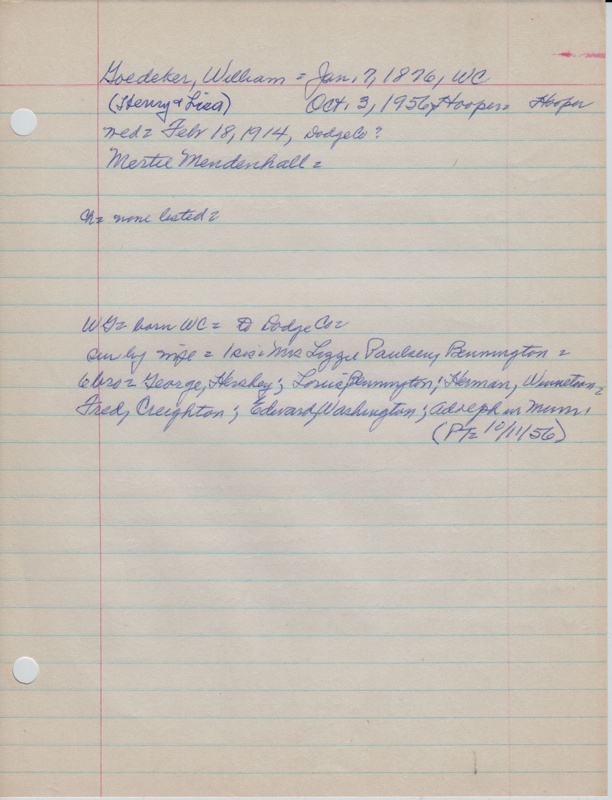 Goedeker, William = Jan. 7, 1876, WC
(Henry & Liza) Oct. 3, 1956, Hooper= Hooper
med= Feb 18, 1914, Dodge Co?
Mertie Mendenhall =
Ch= none listed=
WG= born WC= to Dodge Co=
sur by wife = 1 sis= Mrs Lizzie Paulsen, Bennington =
6 bros= George, Hershey; Louie, Bennington; Herman, Winnetoon=
Fred, Creighton; Edward, Washington; Adolph in Minn.
(PT= 10/11/56)